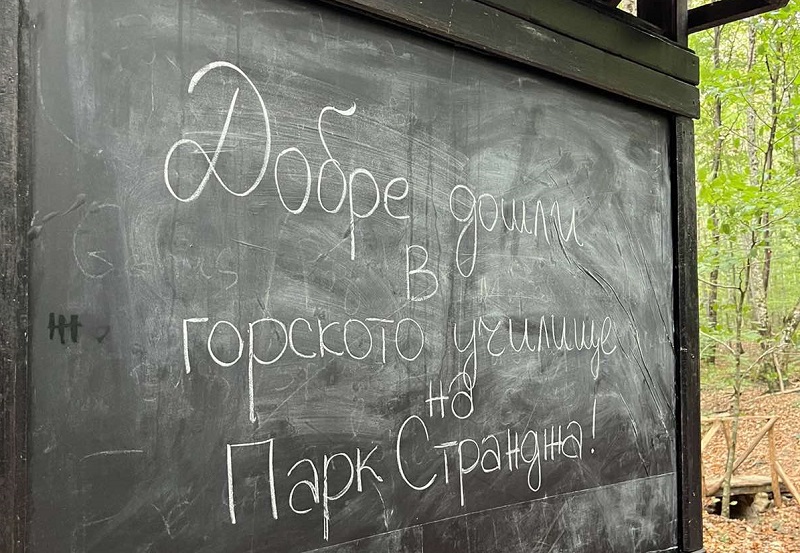 Добре дошли
в
горското училище
на
Парк Странджа!